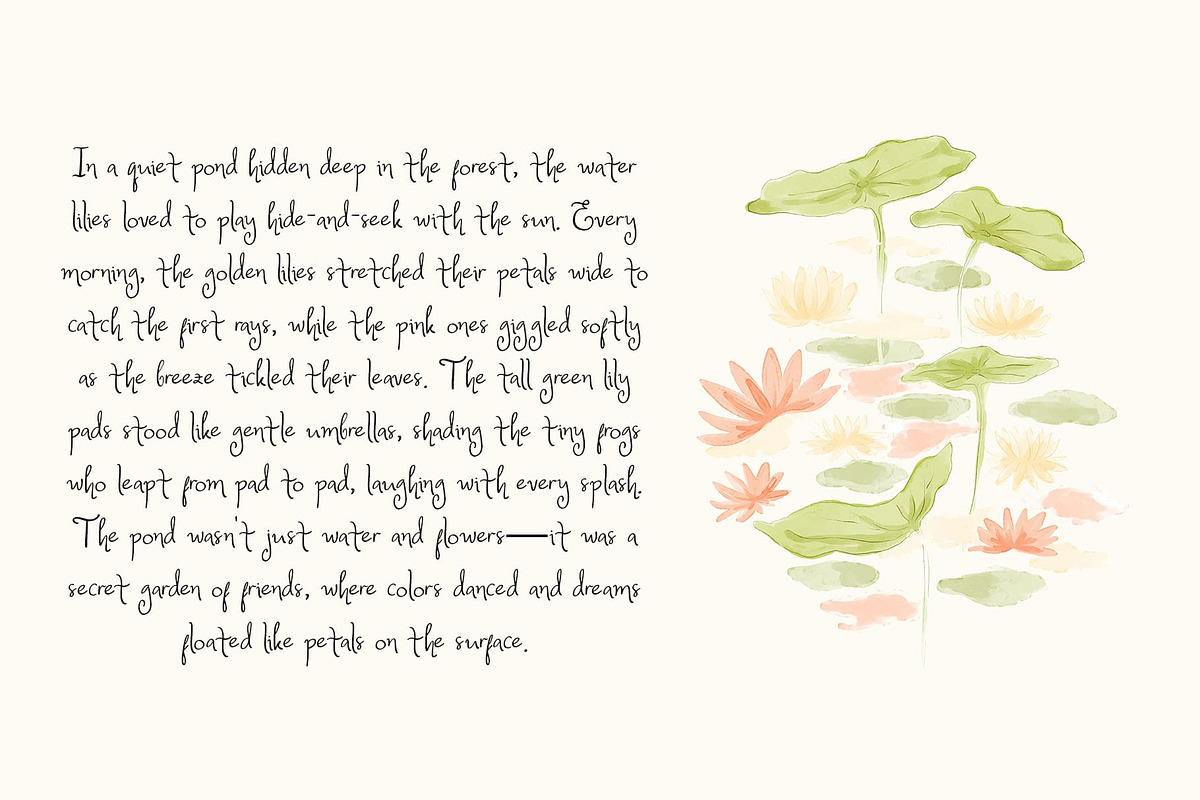 In a quiet pond hidden deep in the forest, the water
lilies loved to play hide-and-seek with the sun. Every
morning, the golden lilies stretched their petals wide to
catch the first rays, while the pink ones giggled softly
as the breeze tickled their leaves. The tall green lily
pads stood like gentle umbrellas, shading the tiny frogs
who leapt from pad to pad, laughing with every splash.
The pond wasn't just water and flowers—it was a
secret garden of friends, where colors danced and dreams
floated like petals on the surface.